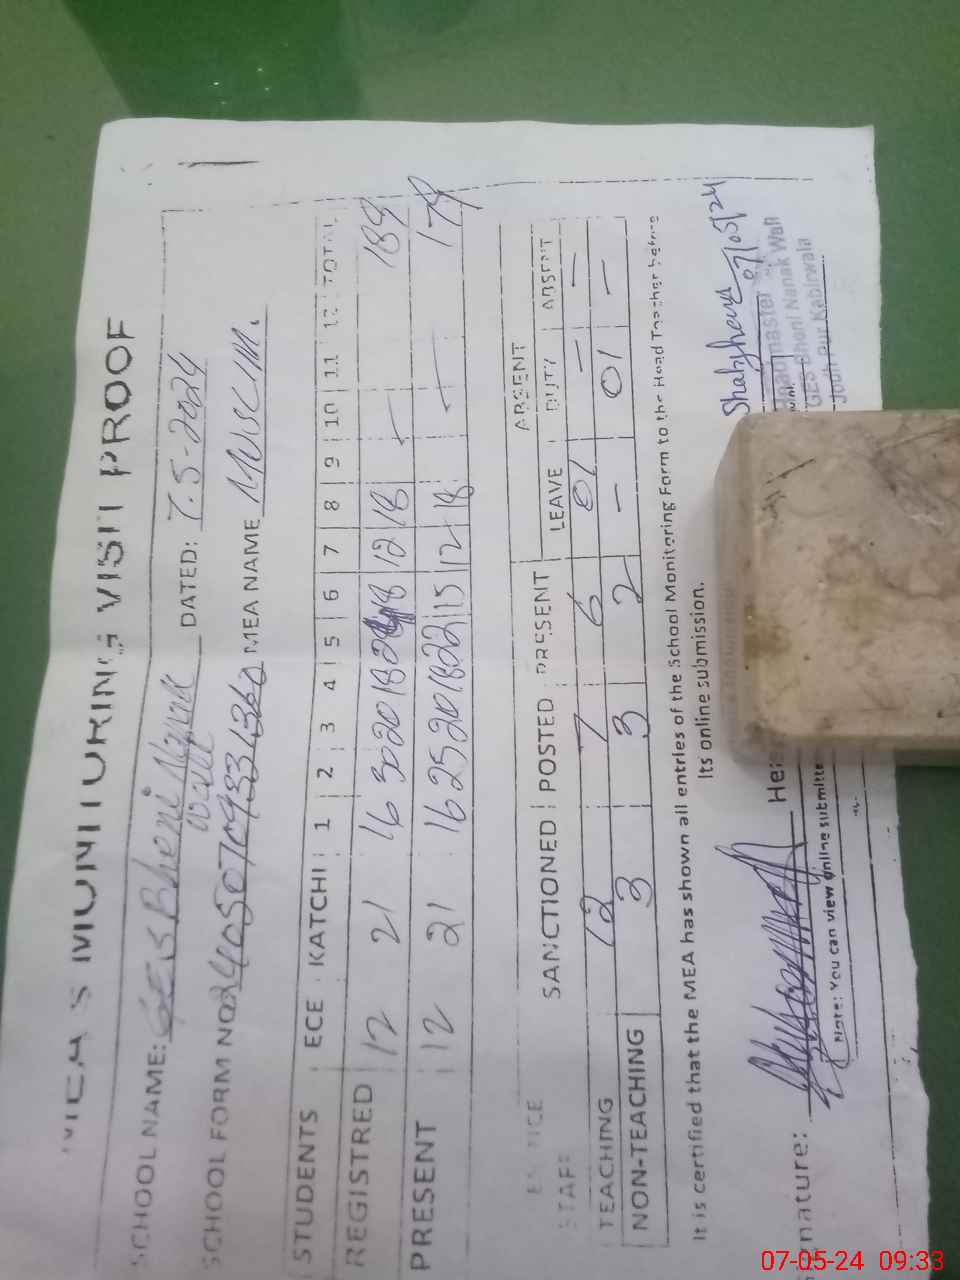 MEA'S MONITORING VISIT PROOF
SCHOOL NAME: GES Bheni Nanak DATED: 7.5-2024
wali
SCHOOL FORM NO MEA NAME
STUDENTS ECE KATCHI 1 2 3 4 5 6 7 8 9 10 11 12 TOTAL
REGISTRED 12 21 16 30 20 18 24 18 12 18 189
PRESENT 12 21 16 25 20 18 22 15 12 18 179
ABSENT
STAFF SANCTIONED POSTED PRESENT LEAVE DUTY ABSENT
TEACHING 12 7 6 01 — —
NON-TEACHING 3 3 2 — 01 —
It is certified that the MEA has shown all entries of the School Monitoring Form to the Head Teacher before
Its online submission.
Shahzheng 07/05/24
Headmaster
GES Bheni Nanak Wali
Jodh Pur Kabirwala
Note: You can view online submitte
07-05-24 09:33